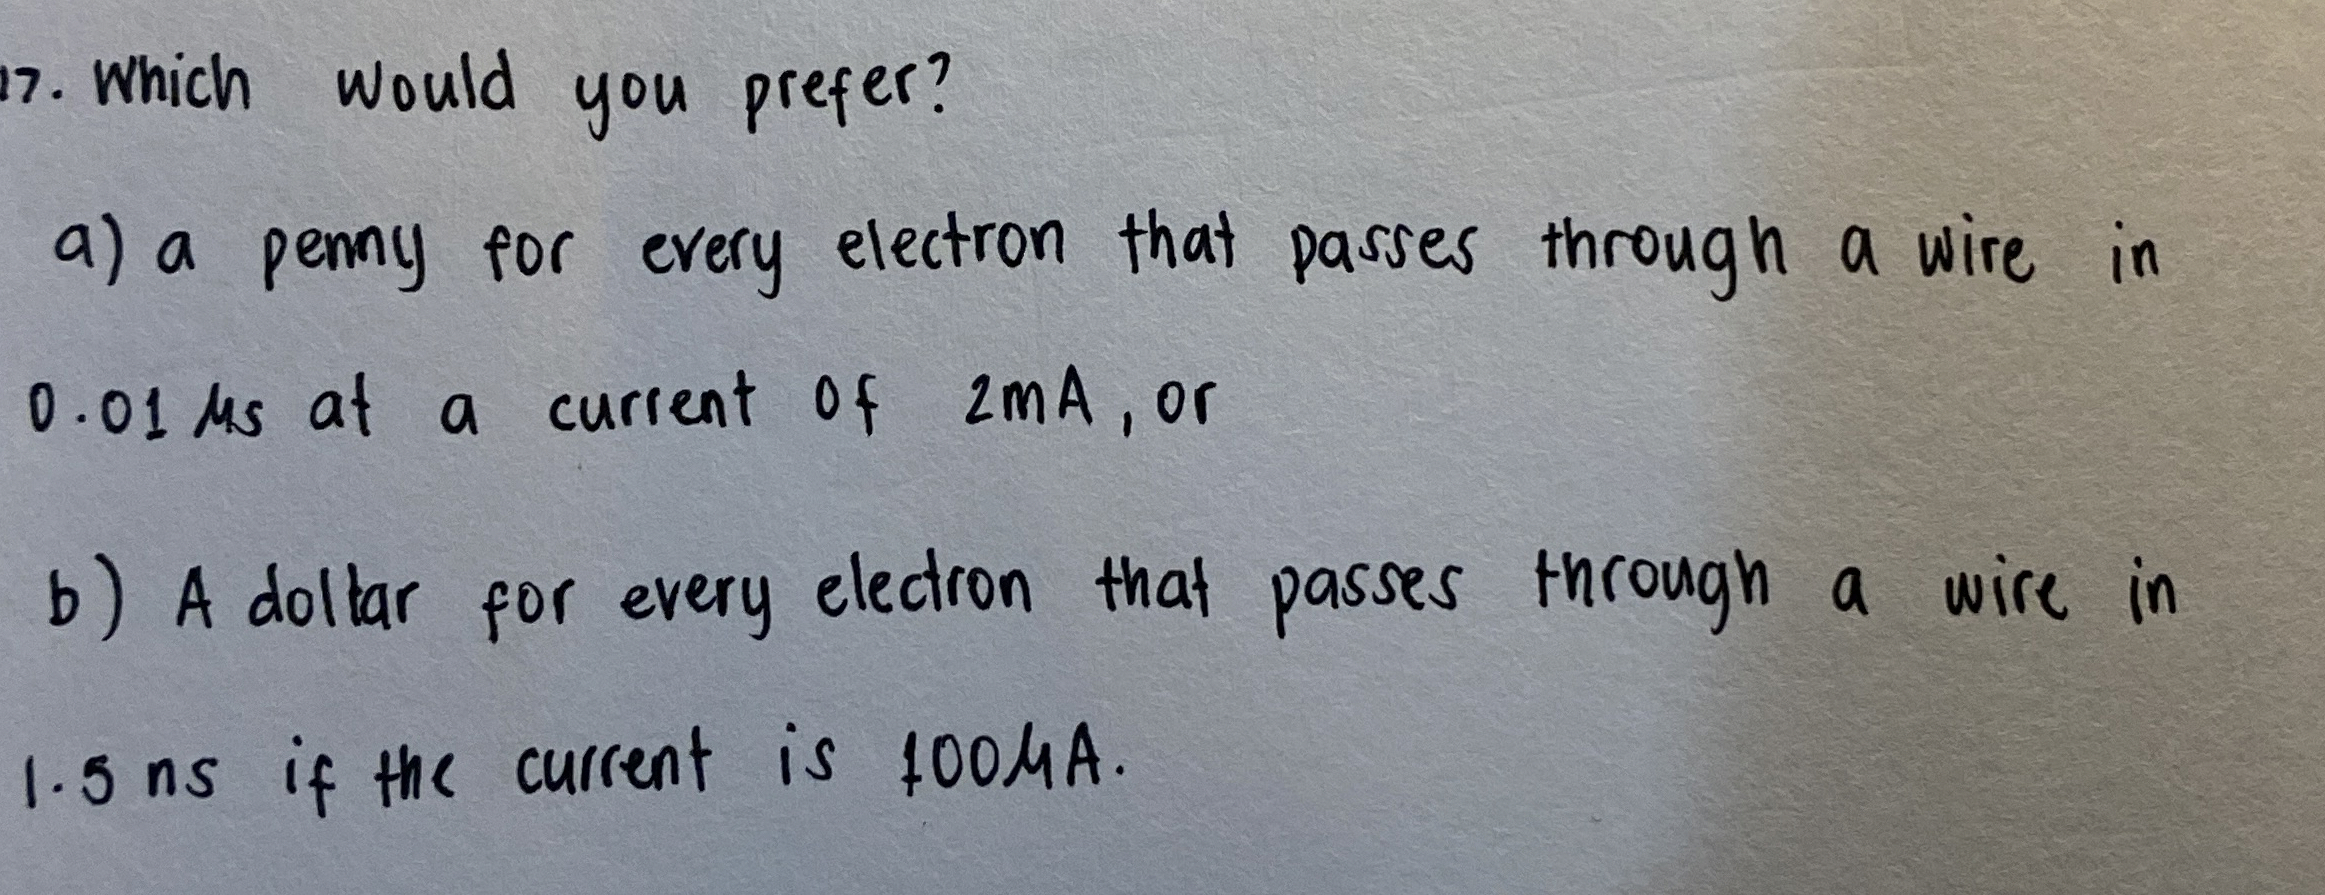 17. Which would you prefer?
a) a penny for every electron that passes through a wire in
0.01 μs at a current of 2mA, or
b) A dollar for every electron that passes through a wire in
1.5 ns if the current is 100μA.